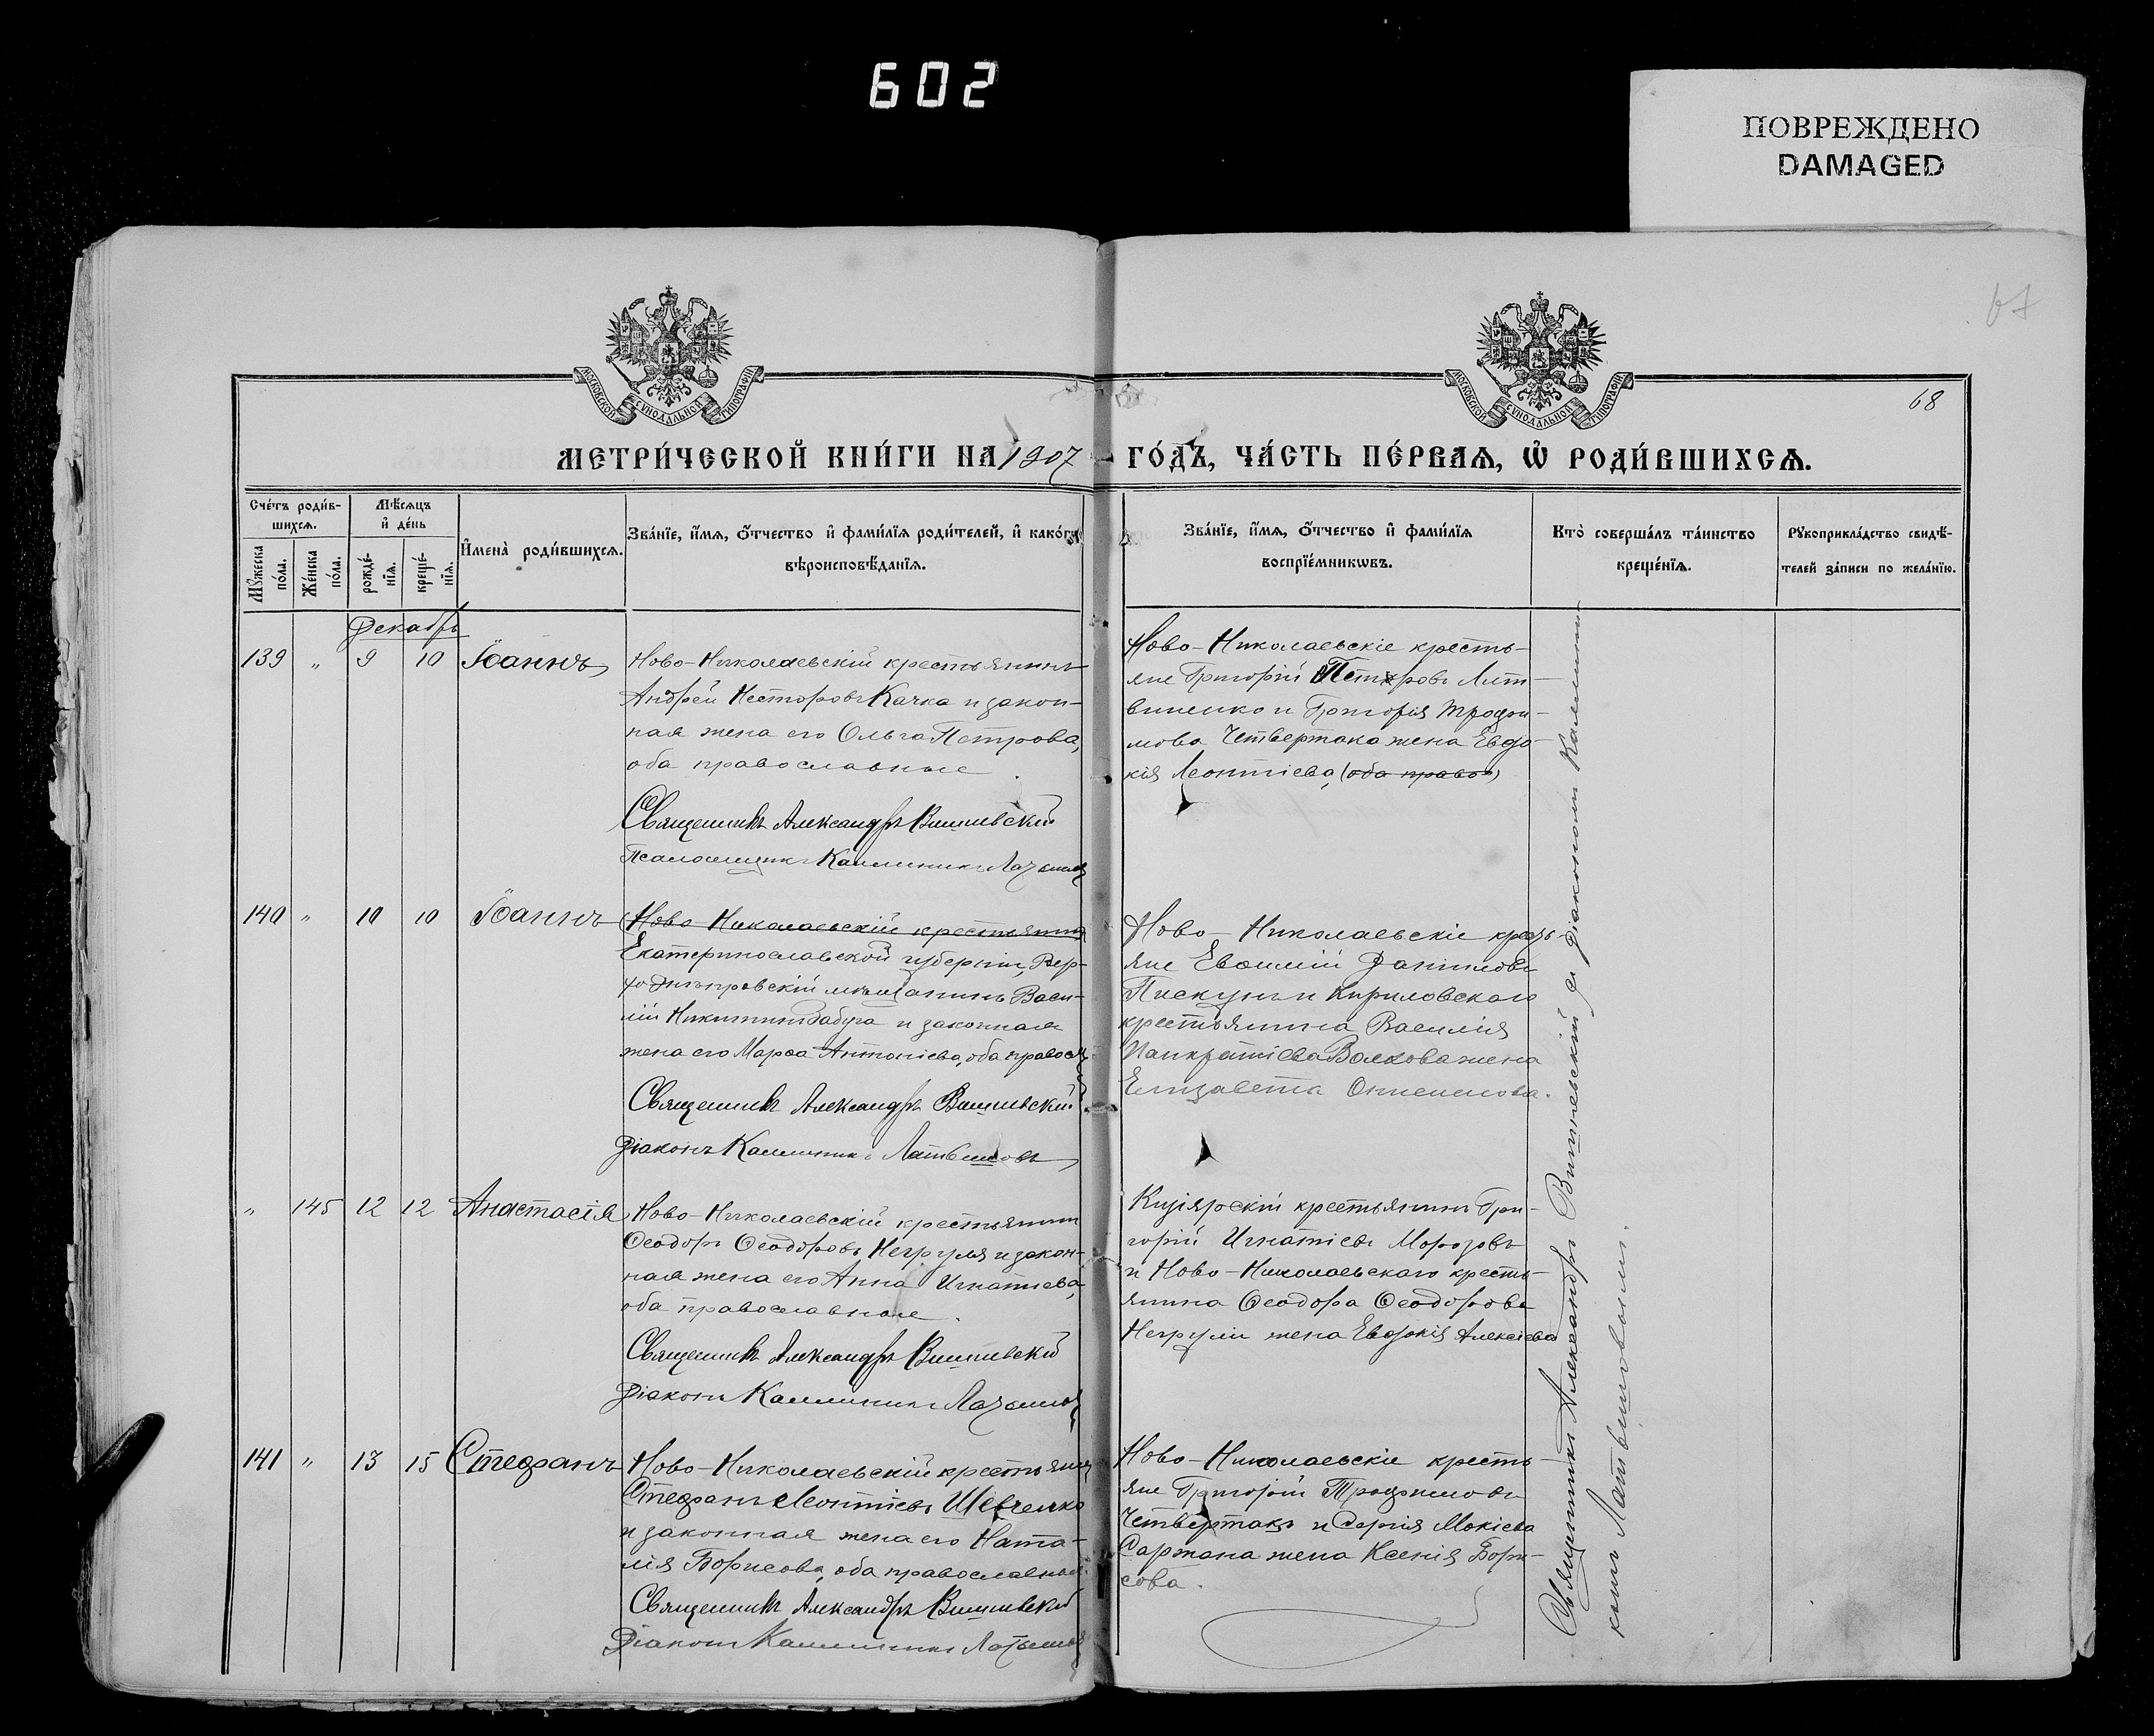 602
ПОВРЕЖДЕНО
DAMAGED
67
68
МОСКОВСКОЙ СѴНОДАЛЬНОЙ ТИПОГРАФІИ
МОСКОВСКОЙ СѴНОДАЛЬНОЙ ТИПОГРАФІИ
МЕТРИ́ЧЕСКОЙ КНИ́ГИ НА 1907 ГО́ДЪ, ЧА́СТЬ ПЕ́РВАѦ, Ѡ҆ РОДИ́ВШИХСѦ.
Сче́тъ роди́в-
шихсѧ.
Мѣ́сѧцъ
и҆ де́нь
Мꙋ́жеска
по́ла.
Же́нска
по́ла.
рожде́-
нїѧ.
креще́-
нїѧ.
И҆мена̀ роди́вшихсѧ.
Зва́нїе, и҆́мѧ, ѻ҆́тчество и҆ фами́лїѧ роди́телей, и҆ како́гѡ
вѣроисповѣ́данїѧ.
Зва́нїе, и҆́мѧ, ѻ҆́тчество и҆ фами́лїѧ
воспрїе́мникѡвъ.
Кто̀ соверша́лъ та́инство
креще́нїѧ.
Рꙋкоприкла́дство свидѣ́-
телей за́писи по жела́нїю.
Декабрь
139 " 9 10 Іоаннъ
Ново-Николаевскій крестьянинъ
Андрей Несторовъ Качка и закон-
ная жена его Ольга Петрова,
оба православные.
Священникъ Александръ Вишневскій
Псаломщикъ Каллиникъ Латышовъ
Ново-Николаевскіе кресть-
яне Григорій Петровъ Лит-
виненко и Григорія Трофи-
мова Четвертака жена Евдо-
кія Леонтіева, (оба право)
140 " 10 10 Іоаннъ
(Ново-Николаевскій крестьянин)
Екатеринославской губерніи, Вер-
ходнѣпровскій мѣщанинъ Васи-
лій Никитинъ Бабуга и законная
жена его Марѳа Антоніева, оба правосл.
Священникъ Александръ Вишневскій
Діаконъ Каллиникъ Латышовъ
Ново-Николаевскіе кресть-
яне Евѳимій Даниловъ
Пискунъ и Кириловскаго
крестьянина Василія
Панкратіева Волкова жена
Елизавета
" 145 12 12 Анастасія
Ново-Николаевскій крестьянинъ
Ѳеодоръ Ѳеодоровъ Негруля и закон-
ная жена его Анна Игнатіева,
оба православные.
Священникъ Александръ Вишневскій
Діаконъ Каллиникъ Латышовъ
Кизіярскій крестьянинъ Гри-
горій Игнатіевъ Морозовъ
и Ново-Николаевскаго кресть-
янина Ѳеодора Ѳеодорова
Негрули жена Евдокія Алексіева
141 " 13 15 Стефанъ
Ново-Николаевскій крестьянин
Стефанъ Леонтіевъ Шевченко
и законная жена его Ната-
лія Борисова, оба православные.
Священникъ Александръ Вишневскій
Діаконъ Каллиникъ Латышовъ
Ново-Николаевскіе кресть-
яне Григорій Трофимовъ
Четвертакъ и Сергія Мокіева
Саржана жена Ксенія Бори-
сова.
Священникъ Александръ Вишневскій съ діакономъ Каллини-
комъ Латышовымъ.